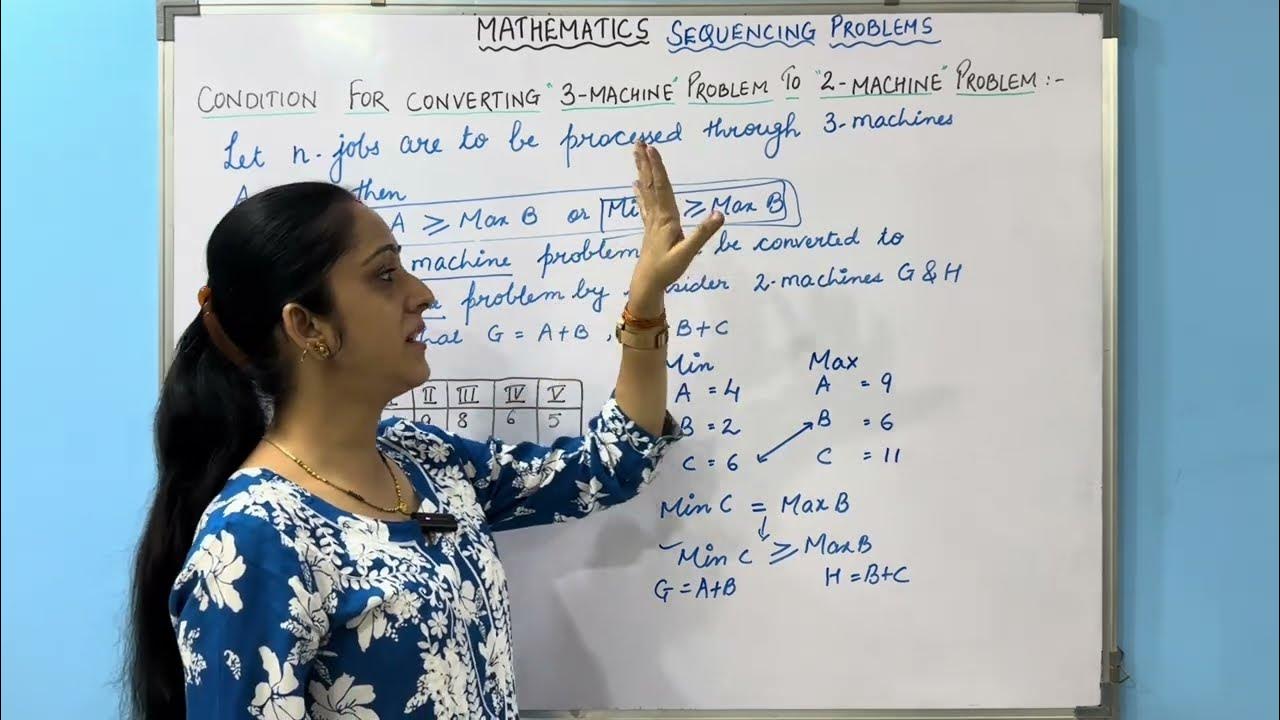 MATHEMATICS SEQUENCING PROBLEMS
CONDITION FOR CONVERTING "3-MACHINE" PROBLEM TO "2-MACHINE" PROBLEM :-
Let n-jobs are to be processed through 3-machines
A then
A ≥ Max B or Mi ≥ Max B
machine problem be converted to
problem by 2-machines G & H
G = A+B , B+C
Min Max
A = 4 A = 9
B = 2 B = 6
C = 6 C = 11
II III IV V
8 6 5
Min C = Max B
Min C ≥ Max B
G = A+B H = B+C